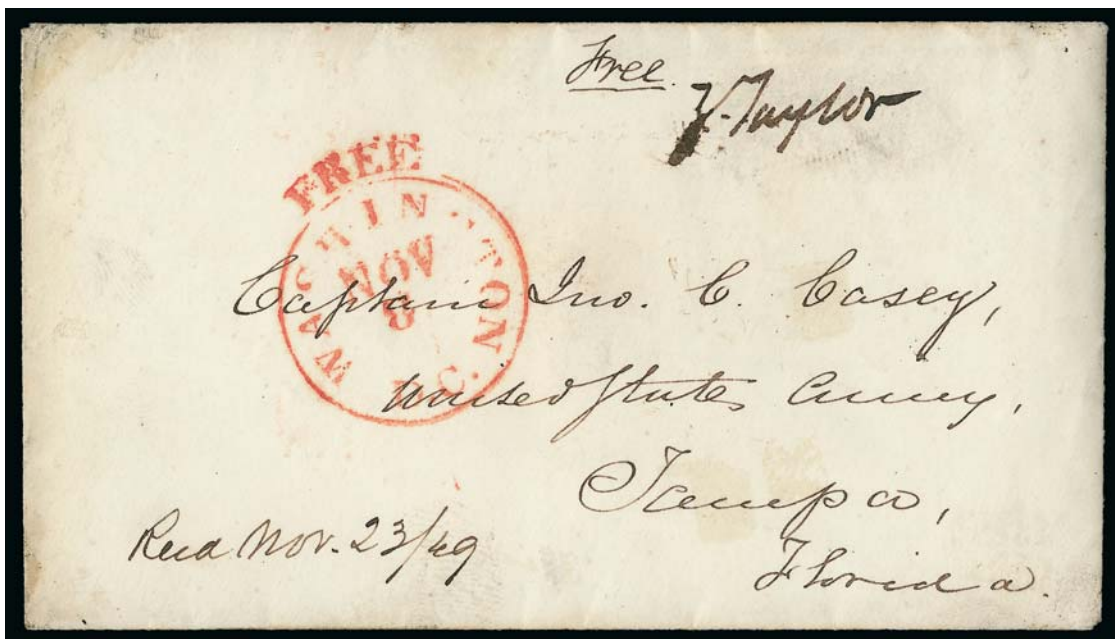 Free.
Z. Taylor
FREE
WASHINGTON D.C.
NOV
8
Captain Jno. C. Casey,
United States Army,
Tampa,
Florida.
Recd Nov. 23/49